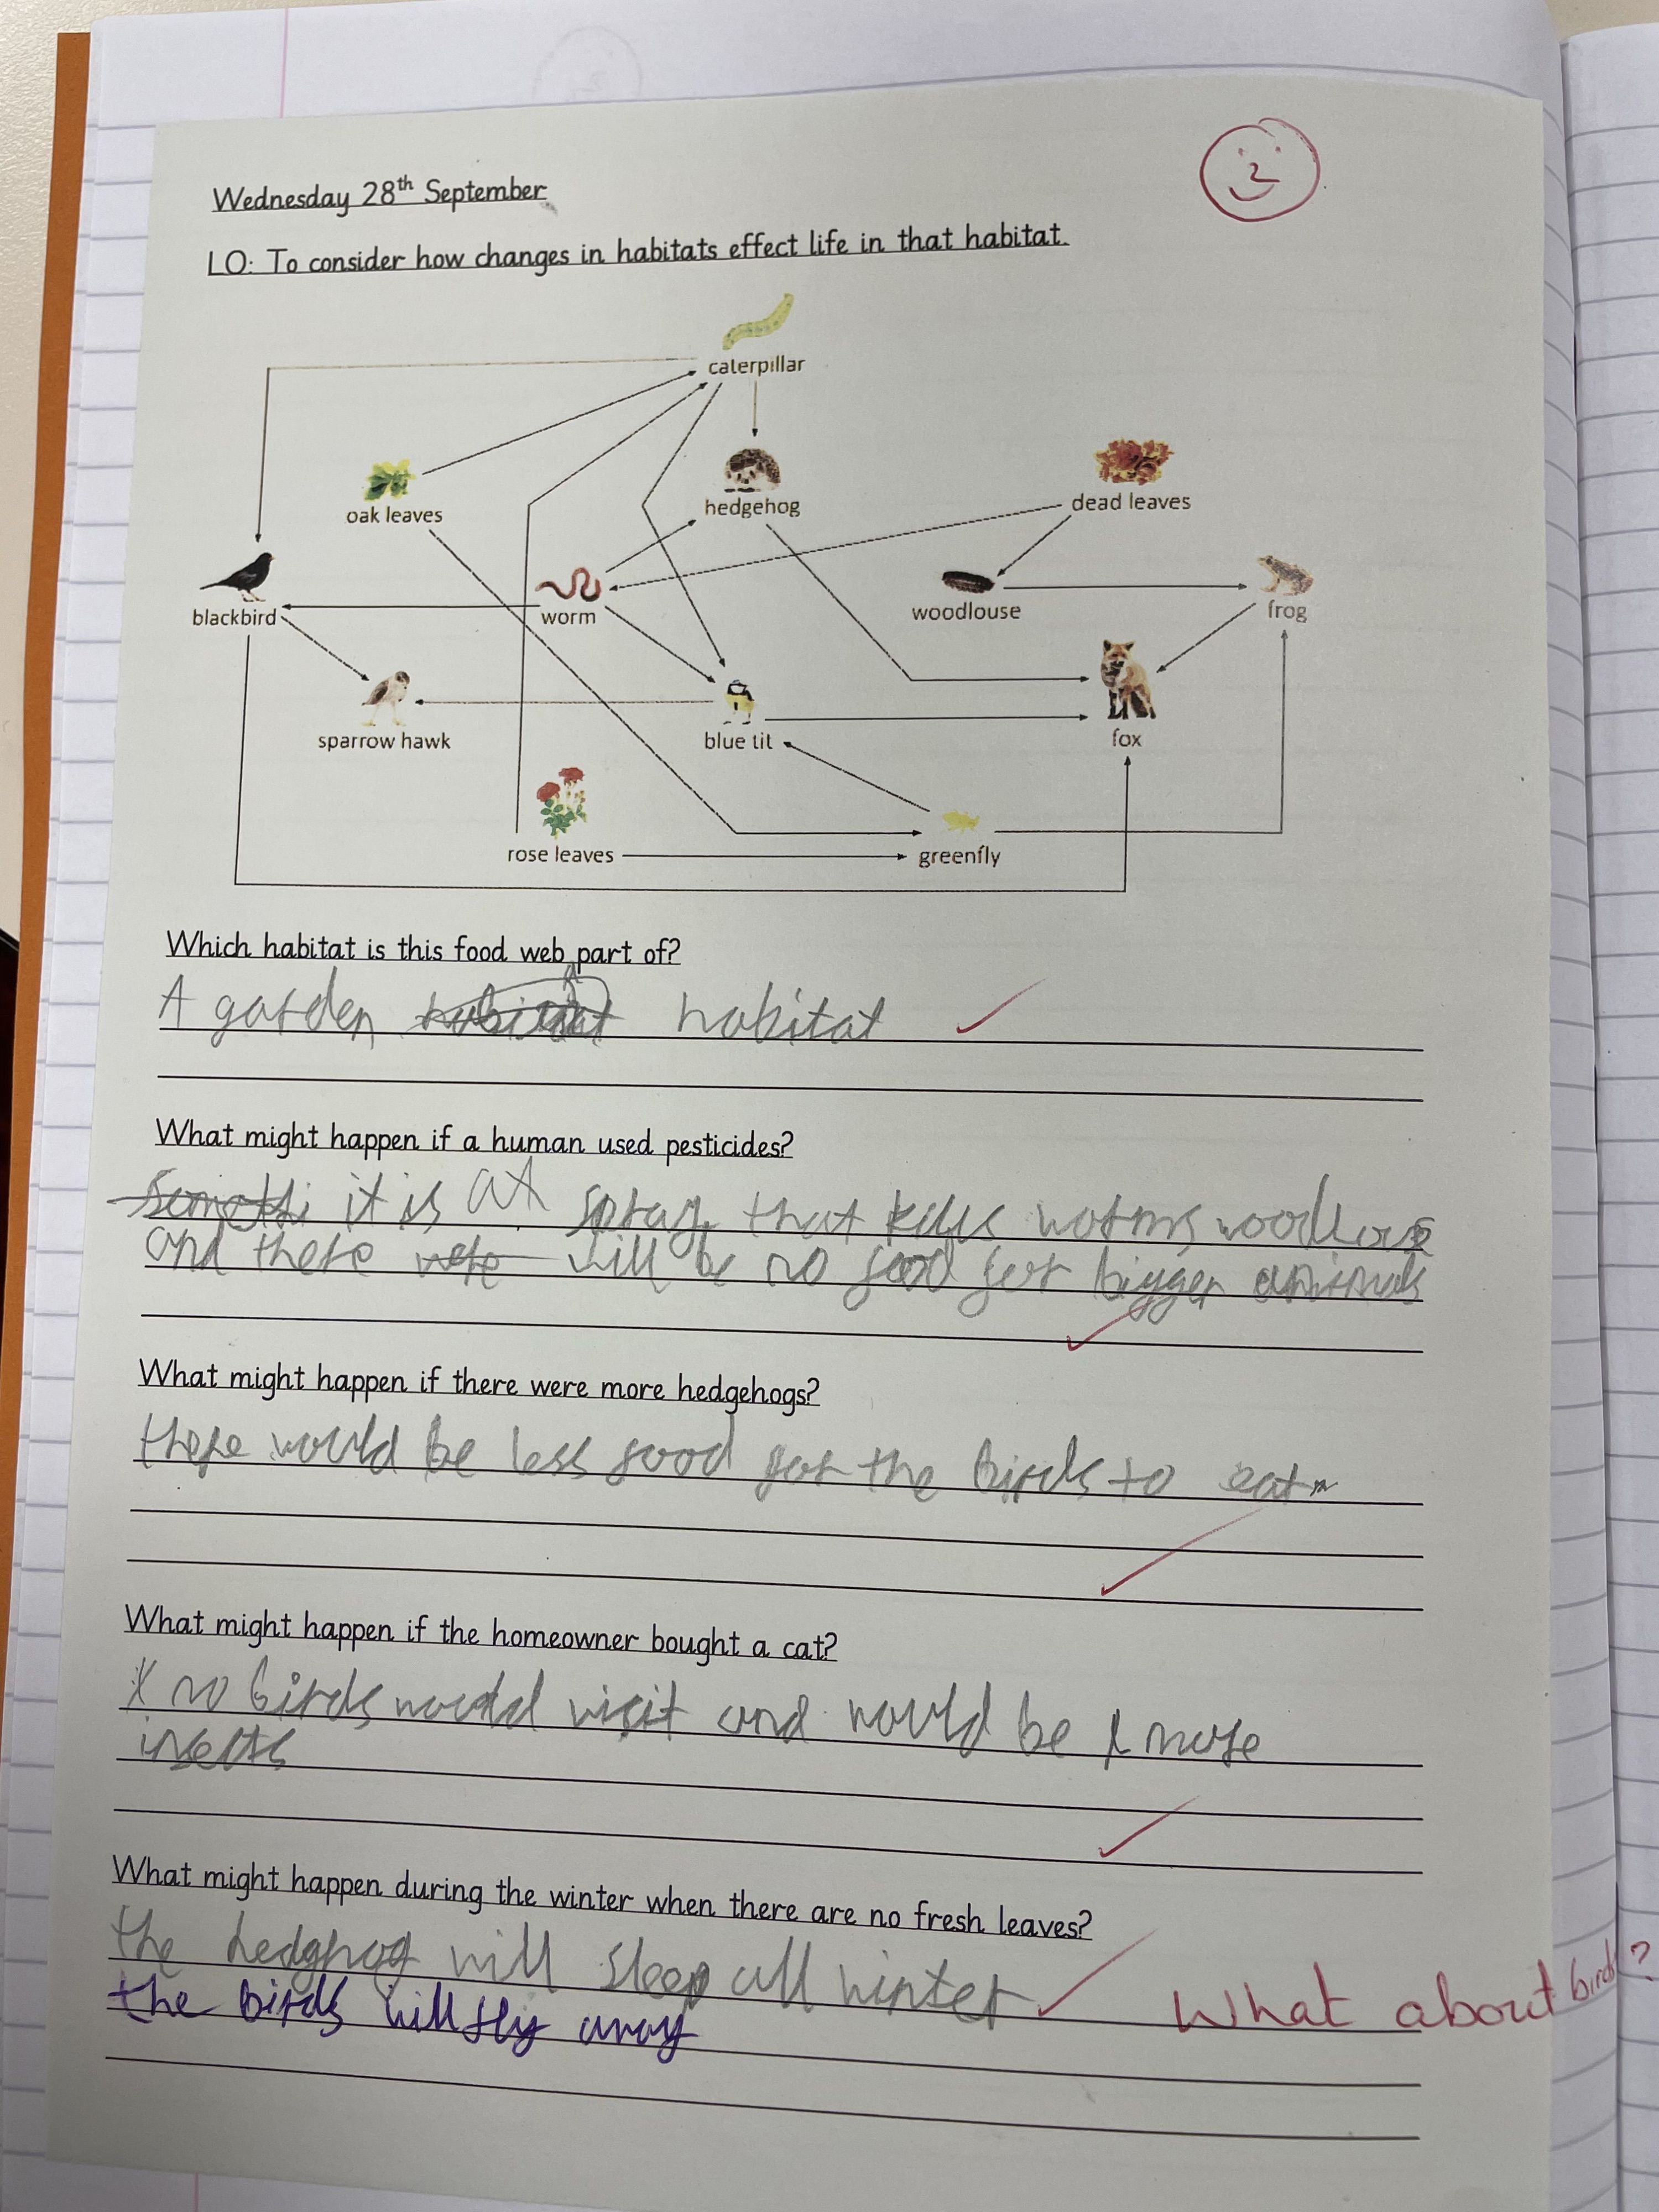 Wednesday 28th September
LO: To consider how changes in habitats effect life in that habitat.
caterpillar
oak leaves
hedgehog
dead leaves
blackbird
worm
woodlouse
frog
sparrow hawk
blue tit
fox
rose leaves
greenfly
Which habitat is this food web part of?
A garden habitat habitat
What might happen if a human used pesticides?
it is at spray that kills worms woodlouse
and there were will be no food for bigger animals
What might happen if there were more hedgehogs?
there would be less food for the birds to eat
What might happen if the homeowner bought a cat?
no birds would visit and would be more
insects
What might happen during the winter when there are no fresh leaves?
the hedghog will sleep all winter What about birds?
the birds will fly away